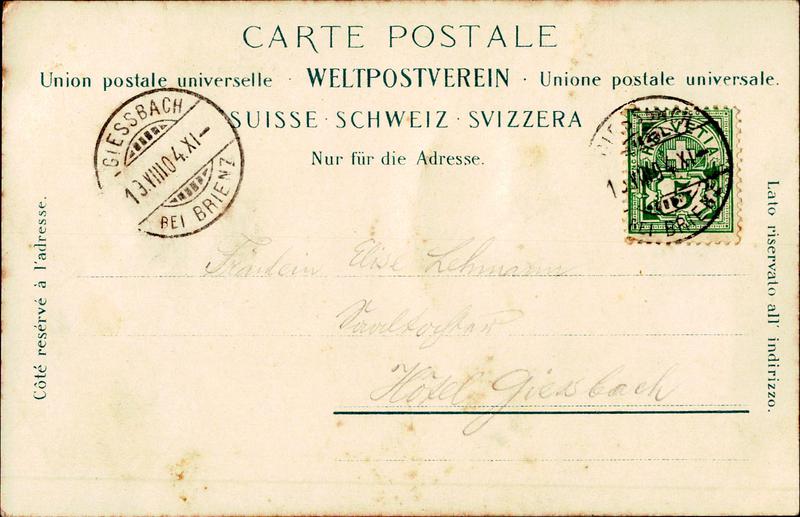 CARTE POSTALE
Union postale universelle · WELTPOSTVEREIN · Unione postale universale.
SUISSE · SCHWEIZ · SVIZZERA
Nur für die Adresse.
GIESSBACH
13.VIII.04.XI—
BEI BRIENZ
HELVETIA
5
Côté resérvé à l'adresse.
Lato riservato all' indirizzo.
Fräulein Elise Lehmann
Saaltochter
Hôtel Giessbach